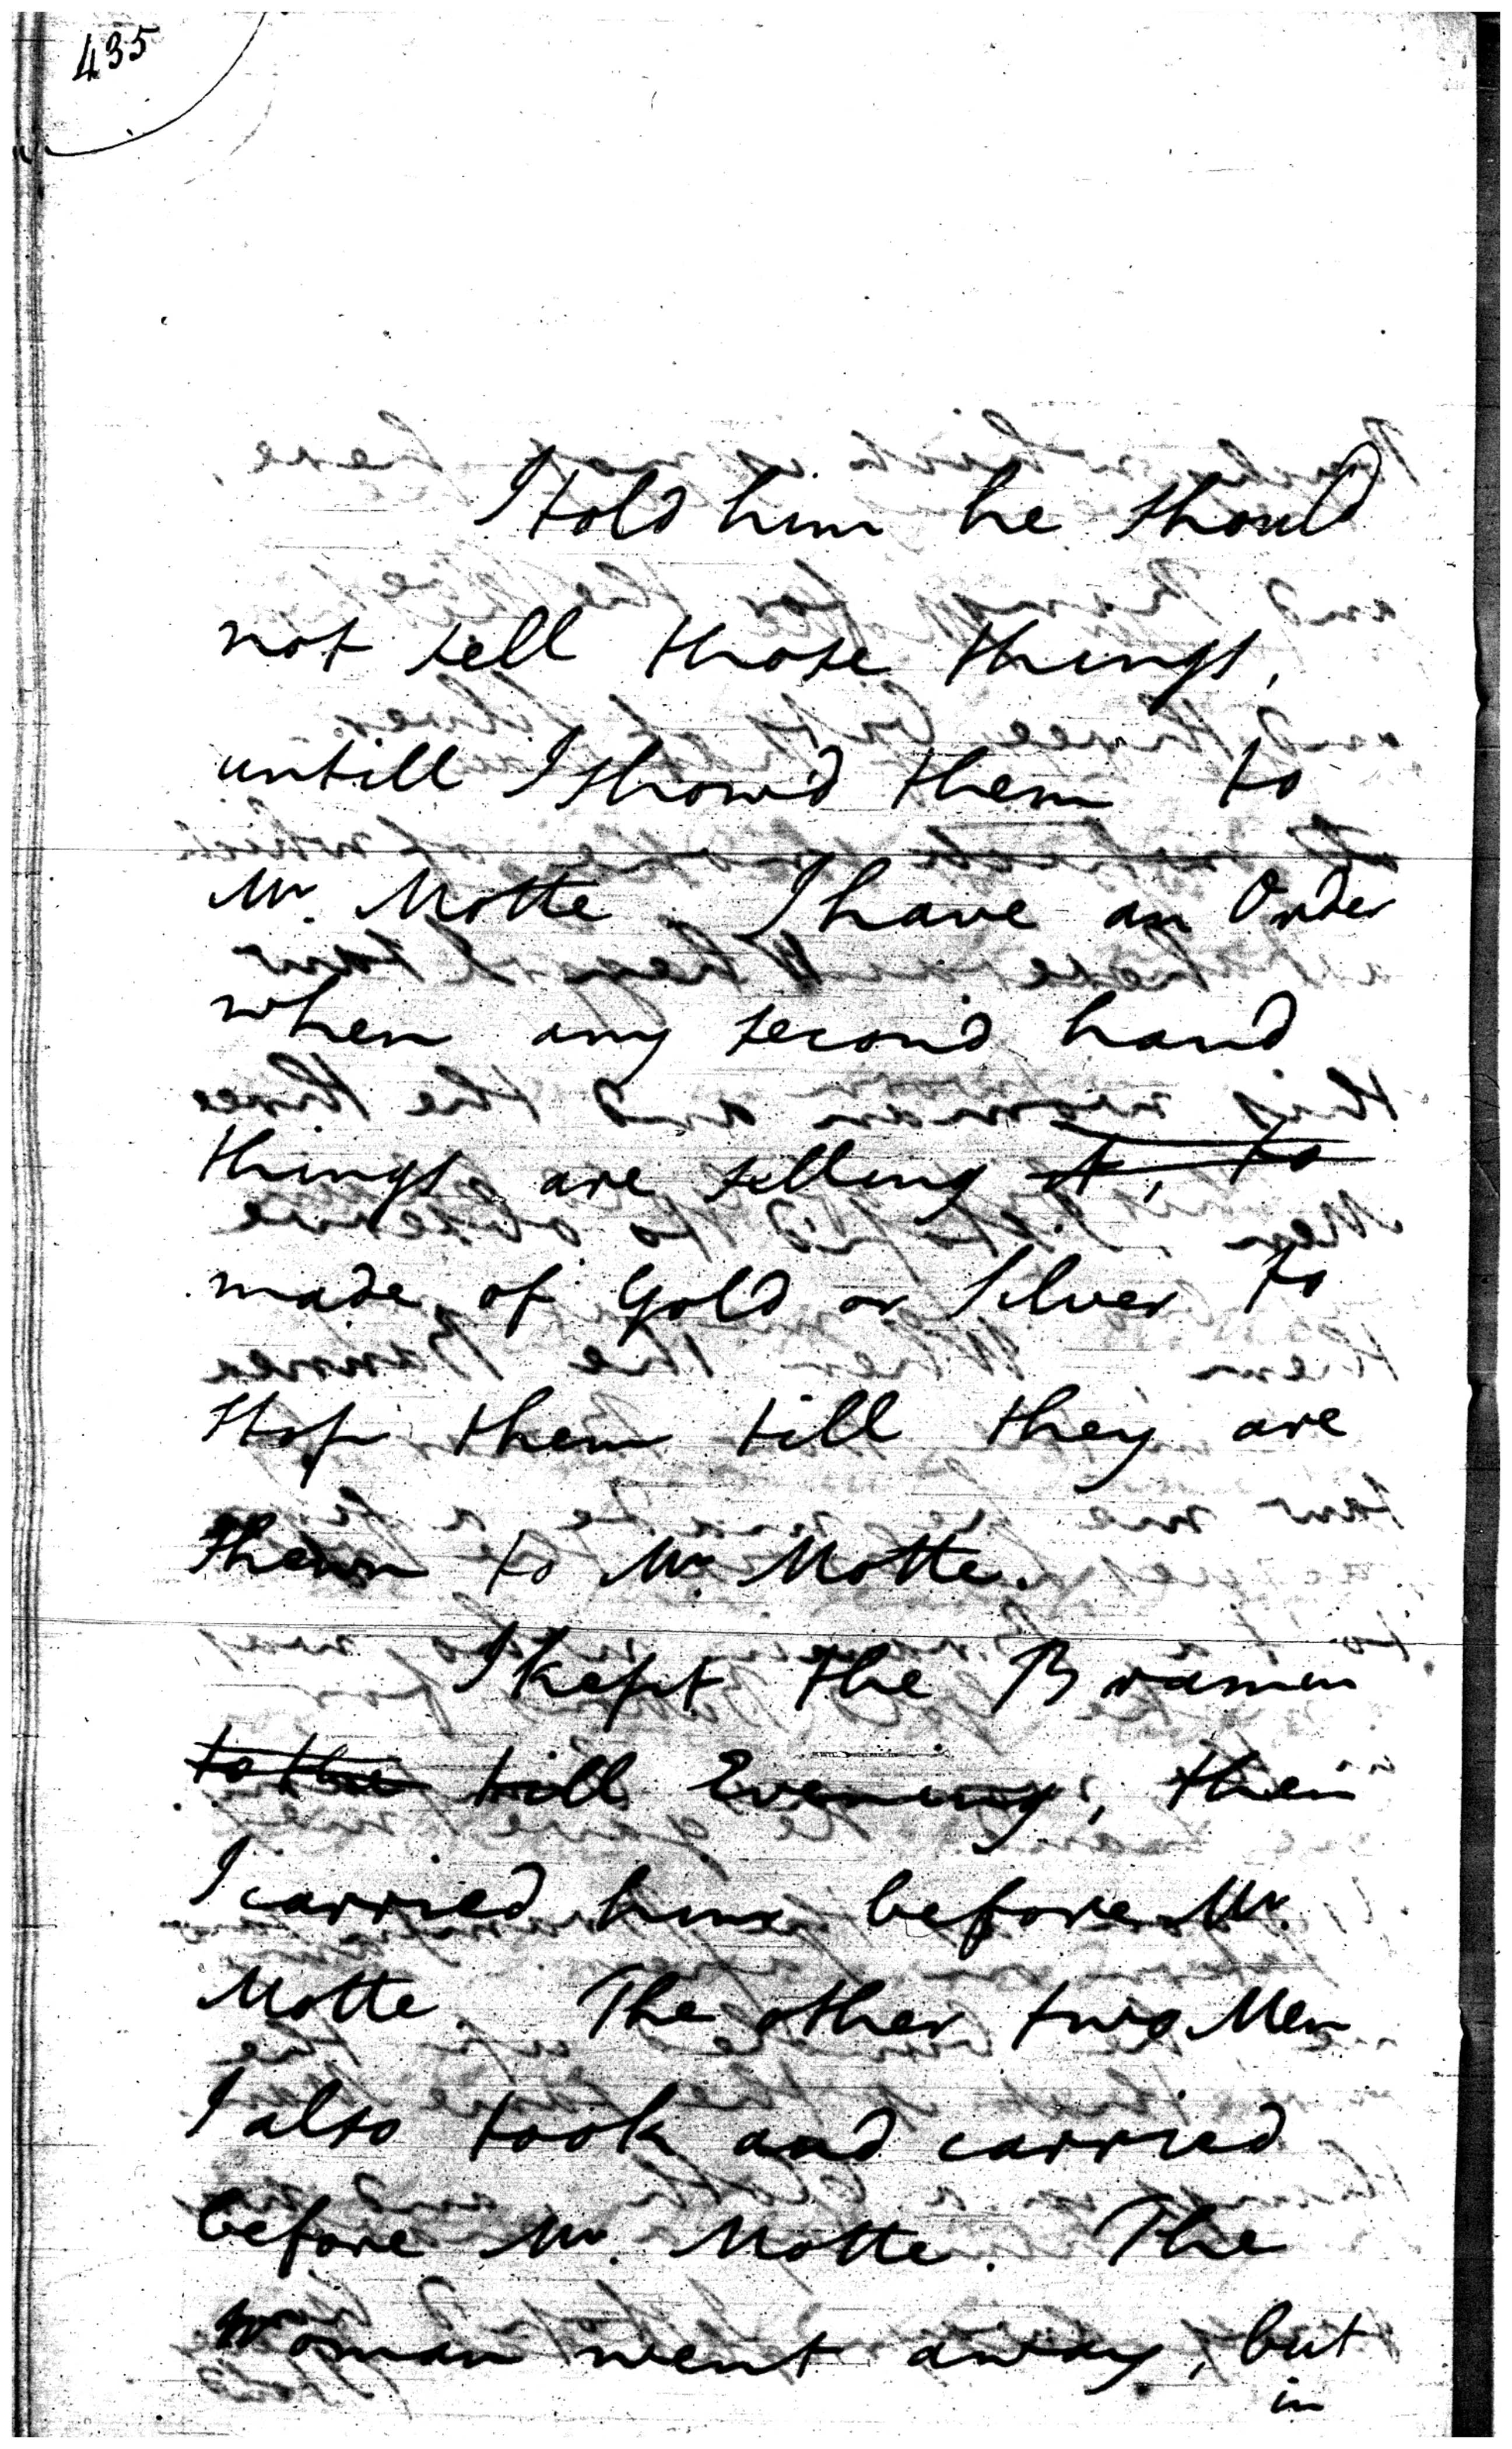 435
I told him he should
not sell those things,
untill I show'd them to
Mr. Motte. I have an Order
when any second hand
things are selling it, to
made of Gold or Silver to
stop them till they are
shewn to Mr. Motte.
I kept the Bramen
to the till Evening, then
I carried him before Mr.
Motte. The other two Men
I also took and carried
before Mr. Motte. The
Woman went away, but
in